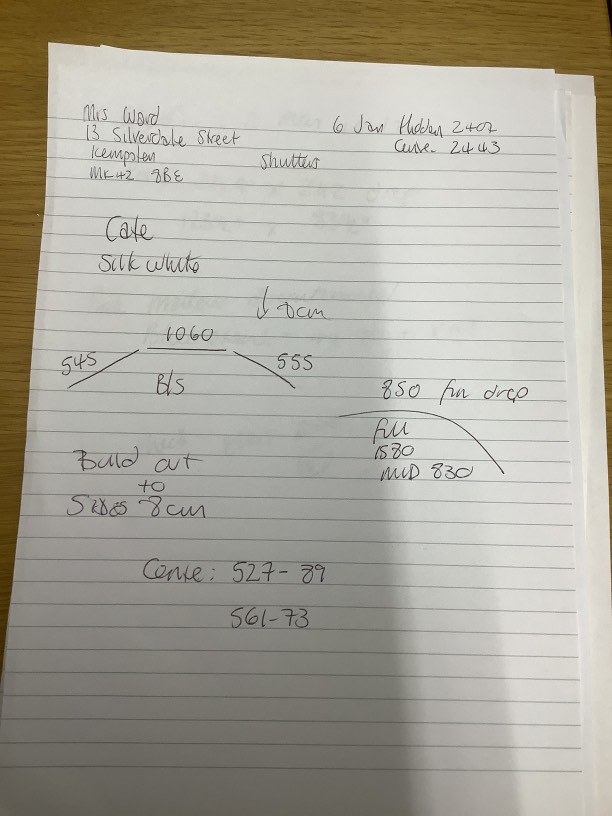 Mrs Ward
13 Silverdale Street
Kempsten
MK42 8BE
Shutters
6 Jan Hidden 2407
Centre- 2443
Cafe
Silk White
↓ 7cm
1060
545
555
B/S
850 fin drop
Full
1580
MID 830
Build out
to
Sides 8cm
Centre: 527-89
561-73